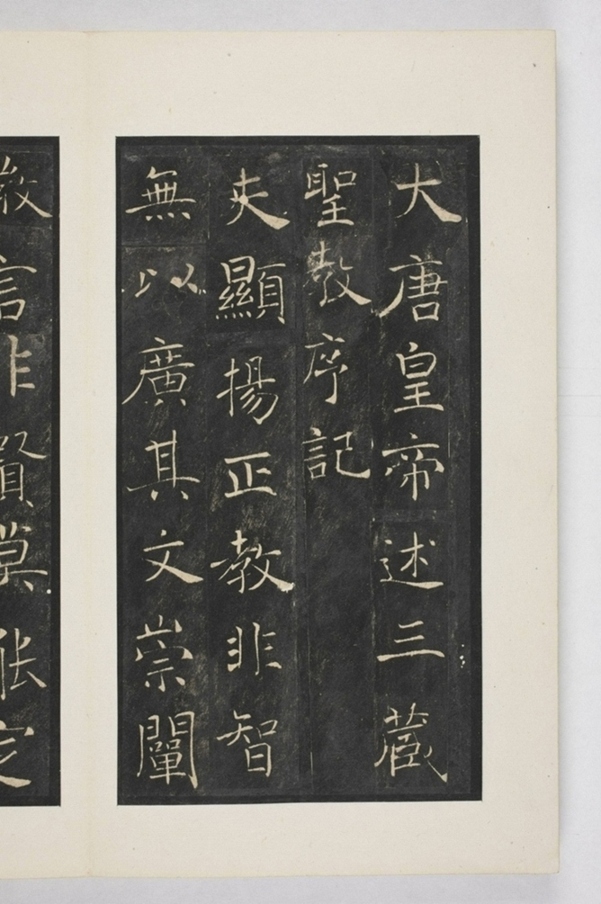 大唐皇帝述三藏
聖教序記
夫顯揚正教非智
無以廣其文崇闡
微言非賢莫能定